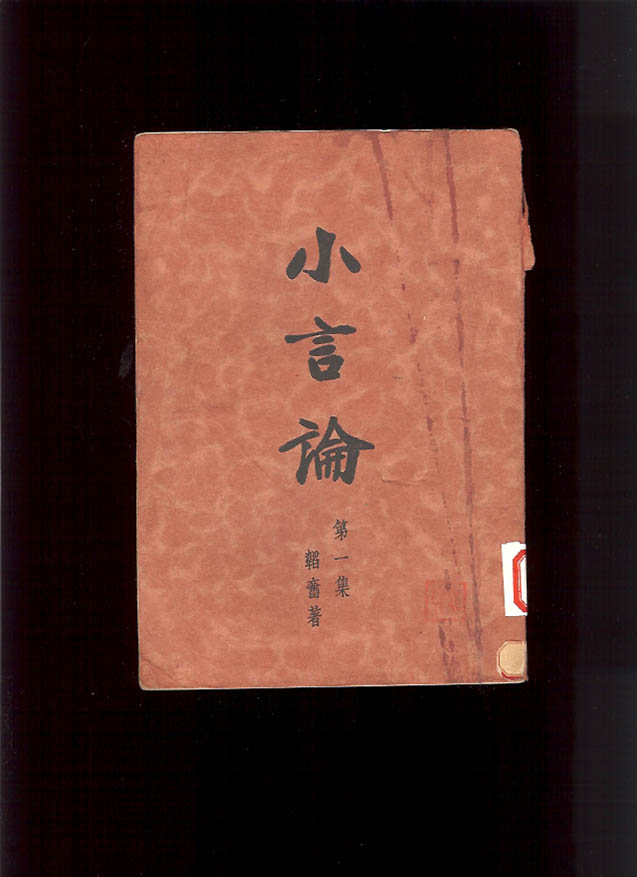 小言論
第一集
韜奮著